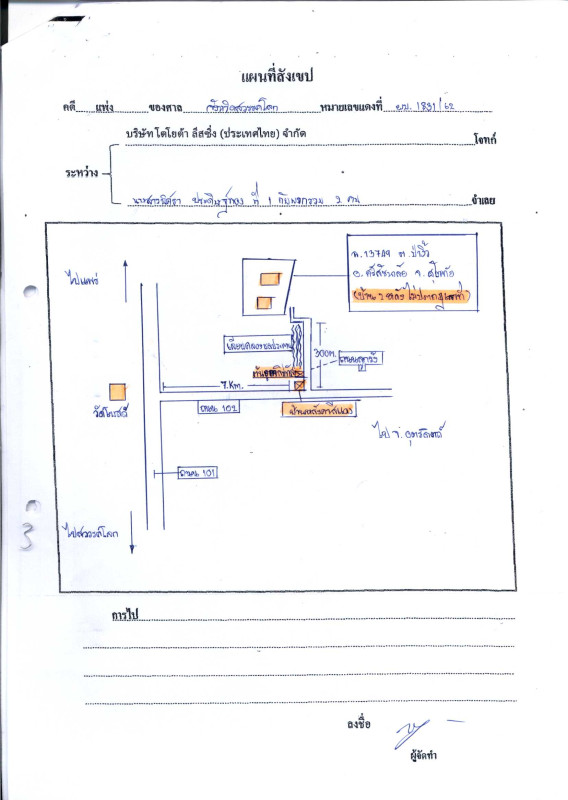 แผนที่สังเขป
คดี แพ่ง ของศาล จังหวัดสวรรคโลก หมายเลขแดงที่ ผบ. 1831/62
บริษัท โตโยต้า ลีสซิ่ง (ประเทศไทย) จำกัด โจทก์
ระหว่าง
นางสาวนิศรา ที่ 1 กับพวกรวม 2 คน จำเลย
น.13749 ต.ป่างิ้ว
ไปแพร่
อ.ศรีสัชนาลัย จ.สุโขทัย
(บ้าน 2 หลัง ไม่ปรากฏเลขที่)
เลียบคลองชลประทาน
300m.
ถนนลูกรัง
7.Km.
วัดโบสถ์
ถนน 102
บ้านหลังคาสีแดง
ไป จ.อุตรดิตถ์
ถนน 101
3
ไปสวรรคโลก
การไป
ลงชื่อ
ผู้จัดทำ